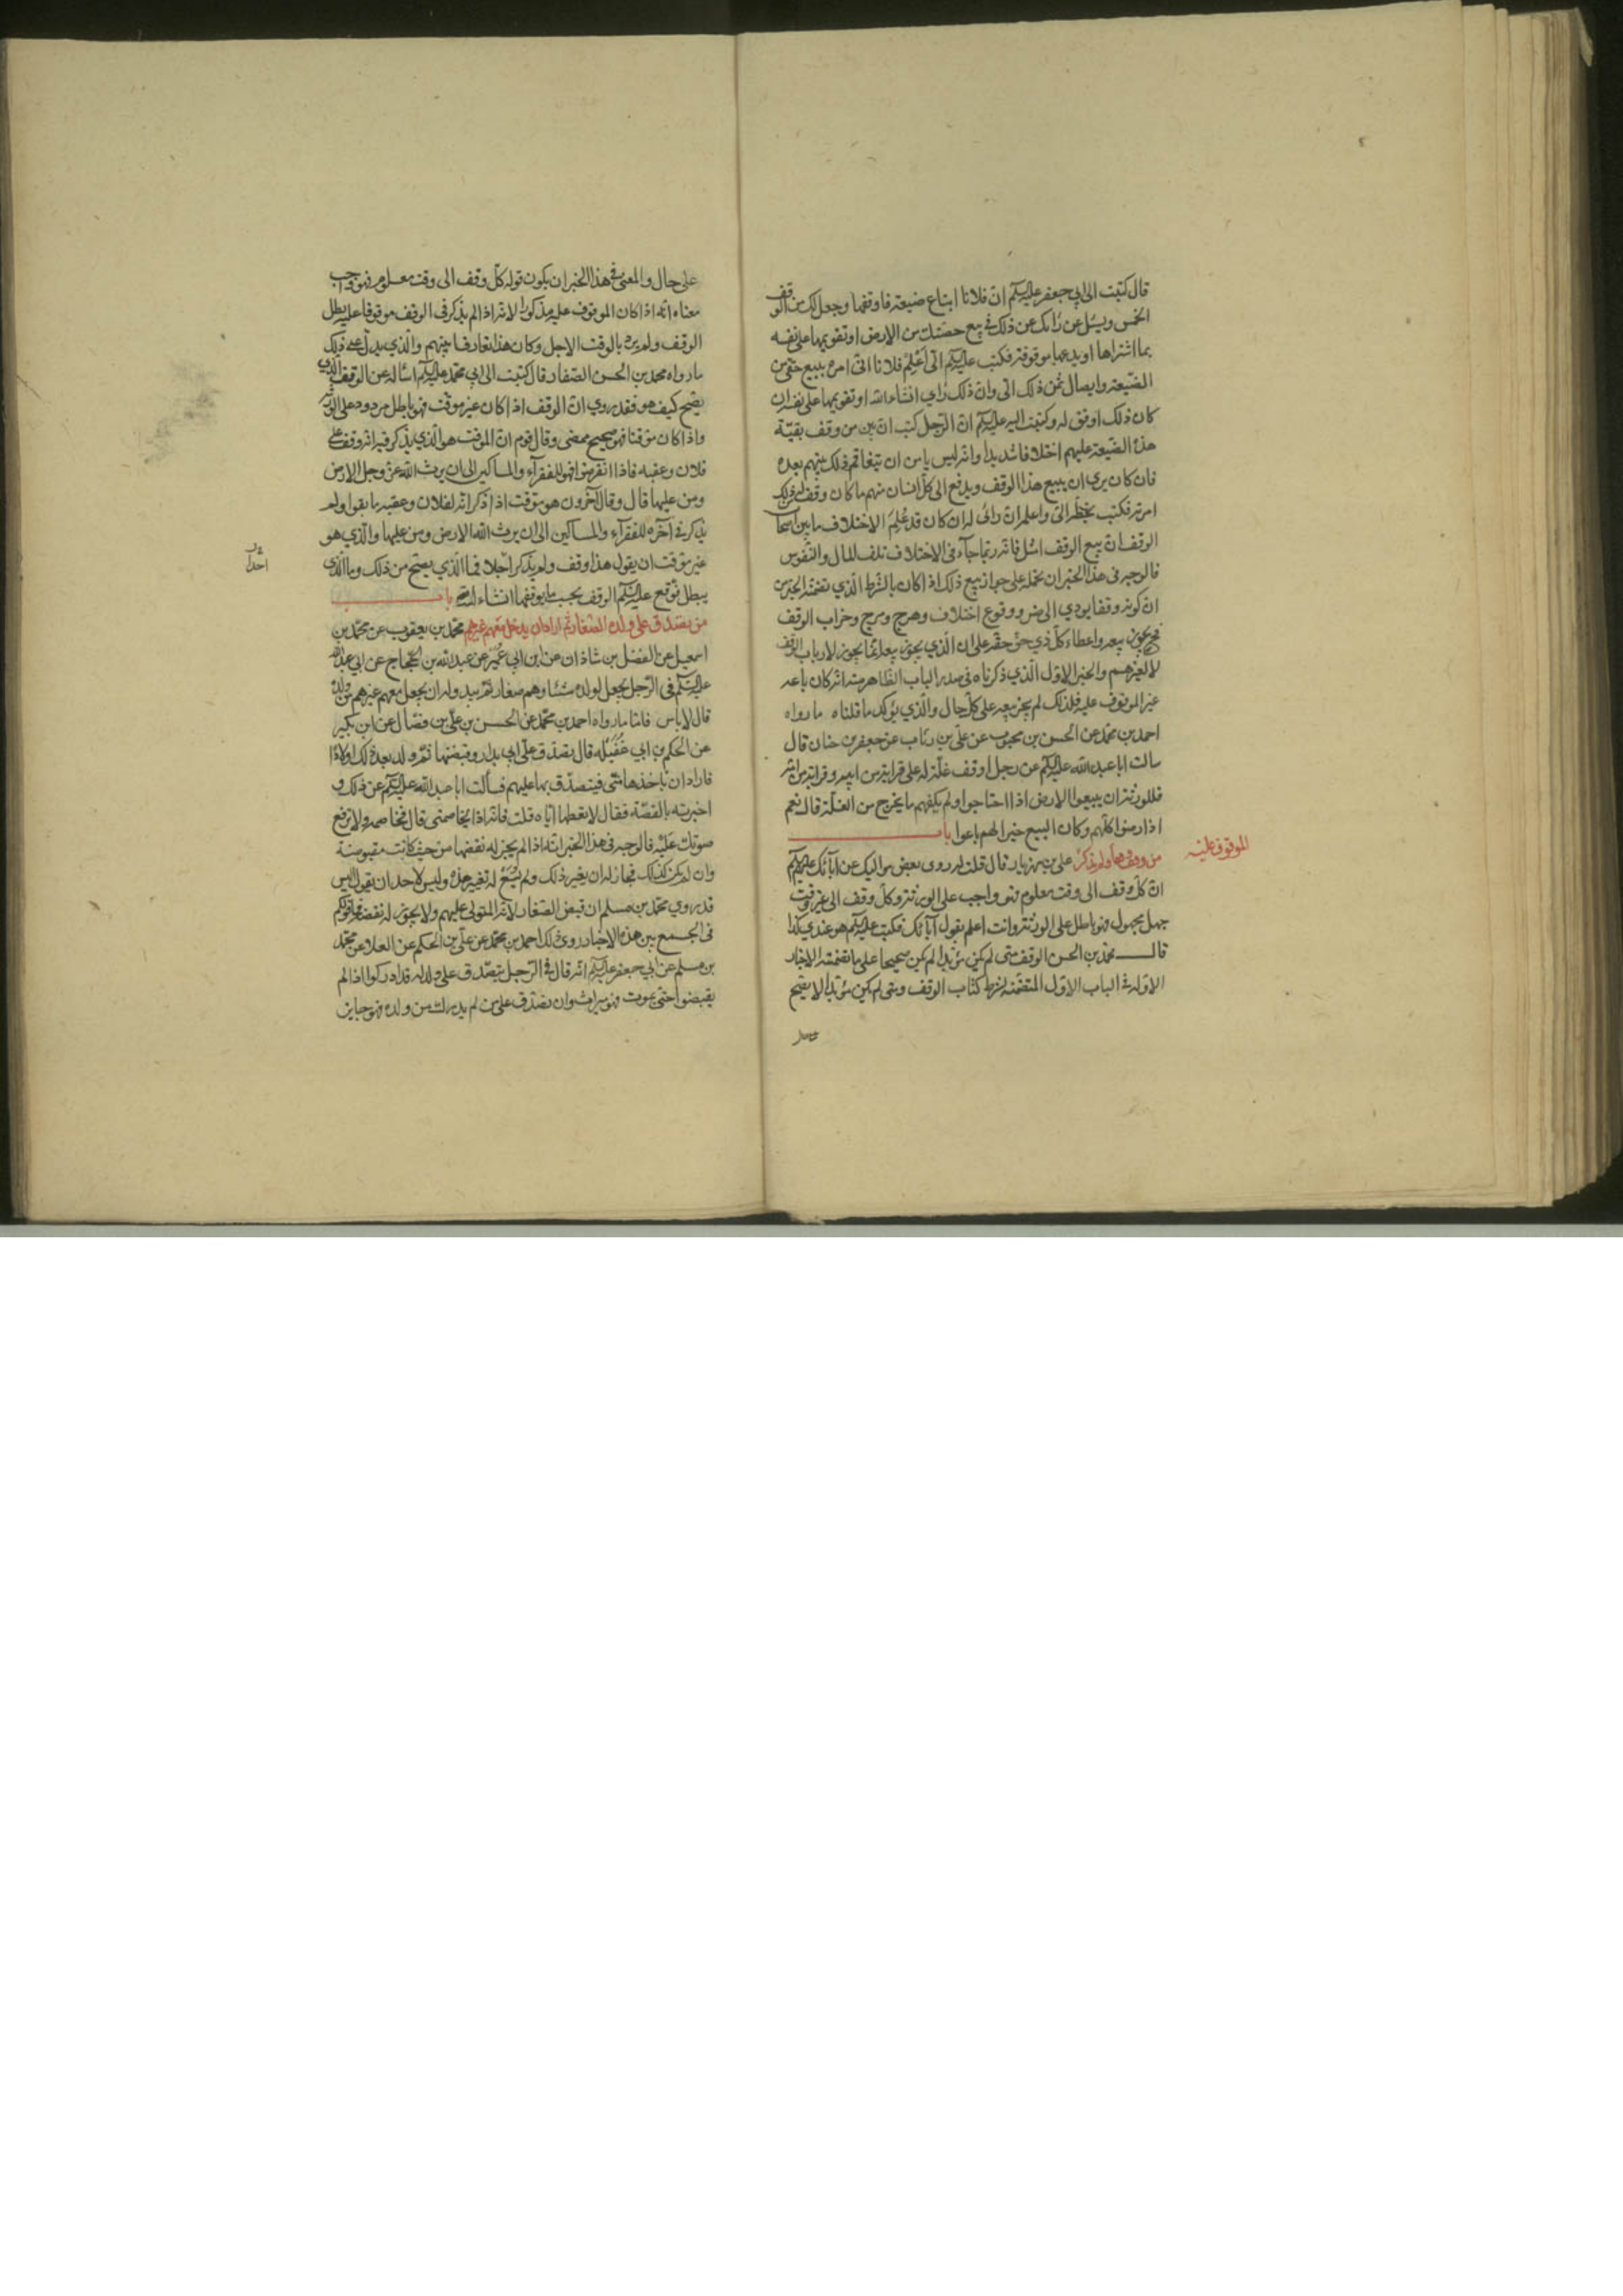 قال كتبت الى ابي جعفر عليه السلم ان فلانا ابتاع ضيعة فاوقفها وجعل لك من الوقف
الخمس ويسئل عن رأيك عن ذلك في بيع حصتك من الارض او تقويمها على نفسه
بما اشتراها او يدعها موقوفة فكتب عليه السلم الي اعلم فلانا اني امره ببيع حقي من
الضيعة وايصال ثمن ذلك الي وان ذلك رأي انشاء الله او تقويمها على نفسه ان
كان ذلك اوفق له وكتبت اليه عليه السلم ان الرجل كتب ان بين من وقف بقية
هذه الضيعة عليهم اختلافا شديدا وانه ليس يامن ان يتفاقم ذلك بينهم بعده
فان كان يرى ان يبيع هذا الوقف ويدفع الى كل انسان منهم ما كان وقف له من ذلك
امرته فكتب بخطه الي واعلمه ان رائي له ان كان قد علم الاختلاف ما بين اصحاب
الوقف ان بيع الوقف امثل فانه ربما جاء في الاختلاف تلف المال والنفوس
فالوجه في هذا الخبر ان نحمله على جواز بيع ذلك اذا كان بالشرط الذي تضمنه الخبر من
ان كونه وقفا يودي الى ضرر ووقوع اختلاف وهرج ومرج وخراب الوقف
فح يجوز بيعه واعطاء كل ذي حق حقه على ان الذي يجوز بيعه انما يجوز لارباب الوقف
لا لغيرهم والخبر الاول الذي ذكرناه في صدر الباب الظاهر منه انه كان باعه
غير الموقوف عليه فلذلك لم يجز بيعه على كل حال والذي يؤكد ما قلناه ما رواه
احمد بن محمد عن الحسن بن محبوب عن علي بن رئاب عن جعفر بن حنان قال
سالت ابا عبد الله عليه السلم عن رجل اوقف غلة له على قرابته من ابيه وقرابته من امه
فللورثة ان يبيعوا الارض اذا احتاجوا ولم يكفهم ما يخرج من الغلة قال نعم
اذا رضوا كلهم وكان البيع خيرا لهم باعوا باب
من وقف وقفا ولم يذكر علي بن مهزيار قال قلت له روى بعض مواليك عن آبائك عليهم السلم
الموقوف عليه
ان كل وقف الى وقت معلوم فهو واجب على الورثة وكل وقف الى غير وقت
جهل مجهول فهو باطل على الورثة وانت اعلم بقول آبائك فكتب عليه السلم هو عندي كذا
قال محمد بن الحسن الوقف متى لم يكن مؤبدا لم يكن صحيحا على ما تضمنته الاخبار
الاولة في الباب الاول المتضمنة لشرط كتاب الوقف ومتى لم يكن مؤبدا لا يصح
على حال والمعنى في هذا الخبر ان يكون قوله كل وقف الى وقت معلوم فهو واجب
معناه انه اذا كان الموقوف عليه مذكورا لانه اذا لم يذكر في الوقف موقوفا عليه بطل
الوقف ولم يرد بالوقت الاجل وكان هذا تعارفا بينهم والذي يدل على ذلك
ما رواه محمد بن الحسن الصفار قال كتبت الى ابي محمد عليه السلم اساله عن الوقف الذي
يصح كيف هو فقد روي ان الوقف اذا كان غير موقت فهو باطل مردود على الورثة
واذا كان موقتا فهو صحيح ممضى وقال قوم ان الموقت هو الذي يذكر فيه انه وقف على
فلان وعقبه فاذا انقرضوا فهو للفقرآء والمساكين الى ان يرث الله عز وجل الارض
ومن عليها قال وقال آخرون هو موقت اذا ذكر انه لفلان وعقبه ما بقوا ولم
يذكر في آخره للفقرآء والمساكين الى ان يرث الله الارض ومن عليها والذي هو
غير موقت ان يقول هذا وقف ولم يذكر احدا فما الذي يصح من ذلك وما الذي
احدا
يبطل فوقع عليه السلم الوقف بحسب ما يوقفها انشاء الله باب
من تصدق على ولده الصغار ثم اراد ان يدخل معهم غيرهم محمد بن يعقوب عن محمد بن
اسمعيل عن الفضل بن شاذان عن ابن ابي عمير عن عبد الله بن الحجاج عن ابي عبد الله
عليه السلم في الرجل يجعل لولده شيئا وهم صغار ثم يبدو له ان يجعل معهم غيرهم من ولده
قال لا باس فاما ما رواه احمد بن محمد عن الحسن بن علي بن فضال عن ابن بكير
عن الحكم بن ابي عقيلة قال تصدق علي ابي بدار وقبضتها ثم ولد بعد ذلك اولاد
فاراد ان ياخذها مني فيتصدق بها عليهم فسألت ابا عبد الله عليه السلم عن ذلك و
اخبرته بالقصة فقال لا تعطها اياه قلت فانه اذا يخاصمني قال فخاصمه ولا ترفع
صوتك عليه فالوجه في هذا الخبر انه اذا لم يجز له نقضها من حيث كانت مقبوضة
وان لم يكن كذلك فجاز له ان يغير ذلك ولم يسغ له تغيير هذه وليس لاحد ان يقول اليس
قد روي محمد بن مسلم ان قبض الصغار لانه المتولي عليهم ولا يجوز له نقضه فما قولكم
في الجمع بين هذه الاخبار روى ذلك احمد بن محمد عن علي بن الحكم عن العلا عن محمد
بن مسلم عن ابي جعفر عليه السلم انه قال في الرجل يتصدق على ولد له قد ادركوا اذا لم
يقبضوا حتى يموت فهو ميراث وان تصدق على من لم يدرك من ولده فهو جايز